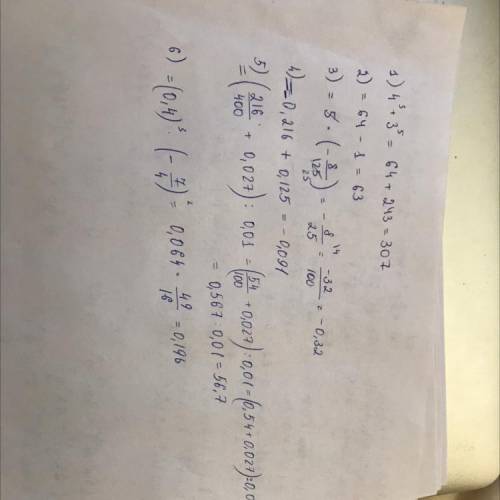 1) 4³ + 3⁵ = 64 + 243 = 307
2) = 64 - 1 = 63
3) = 5 · (-8/125 25) = -8/25 ¹⁴ = -32/100 = -0,32
4) = 0,216 + 0,125 = -0,091
5) = (216/400 + 0,027) : 0,01 = (54/100 + 0,027) : 0,01 = (0,54 + 0,027) : 0,0
= 0,567 : 0,01 = 56,7
6) = (0,4)³ · (-7/4)² = 0,064 · 49/16 = 0,196